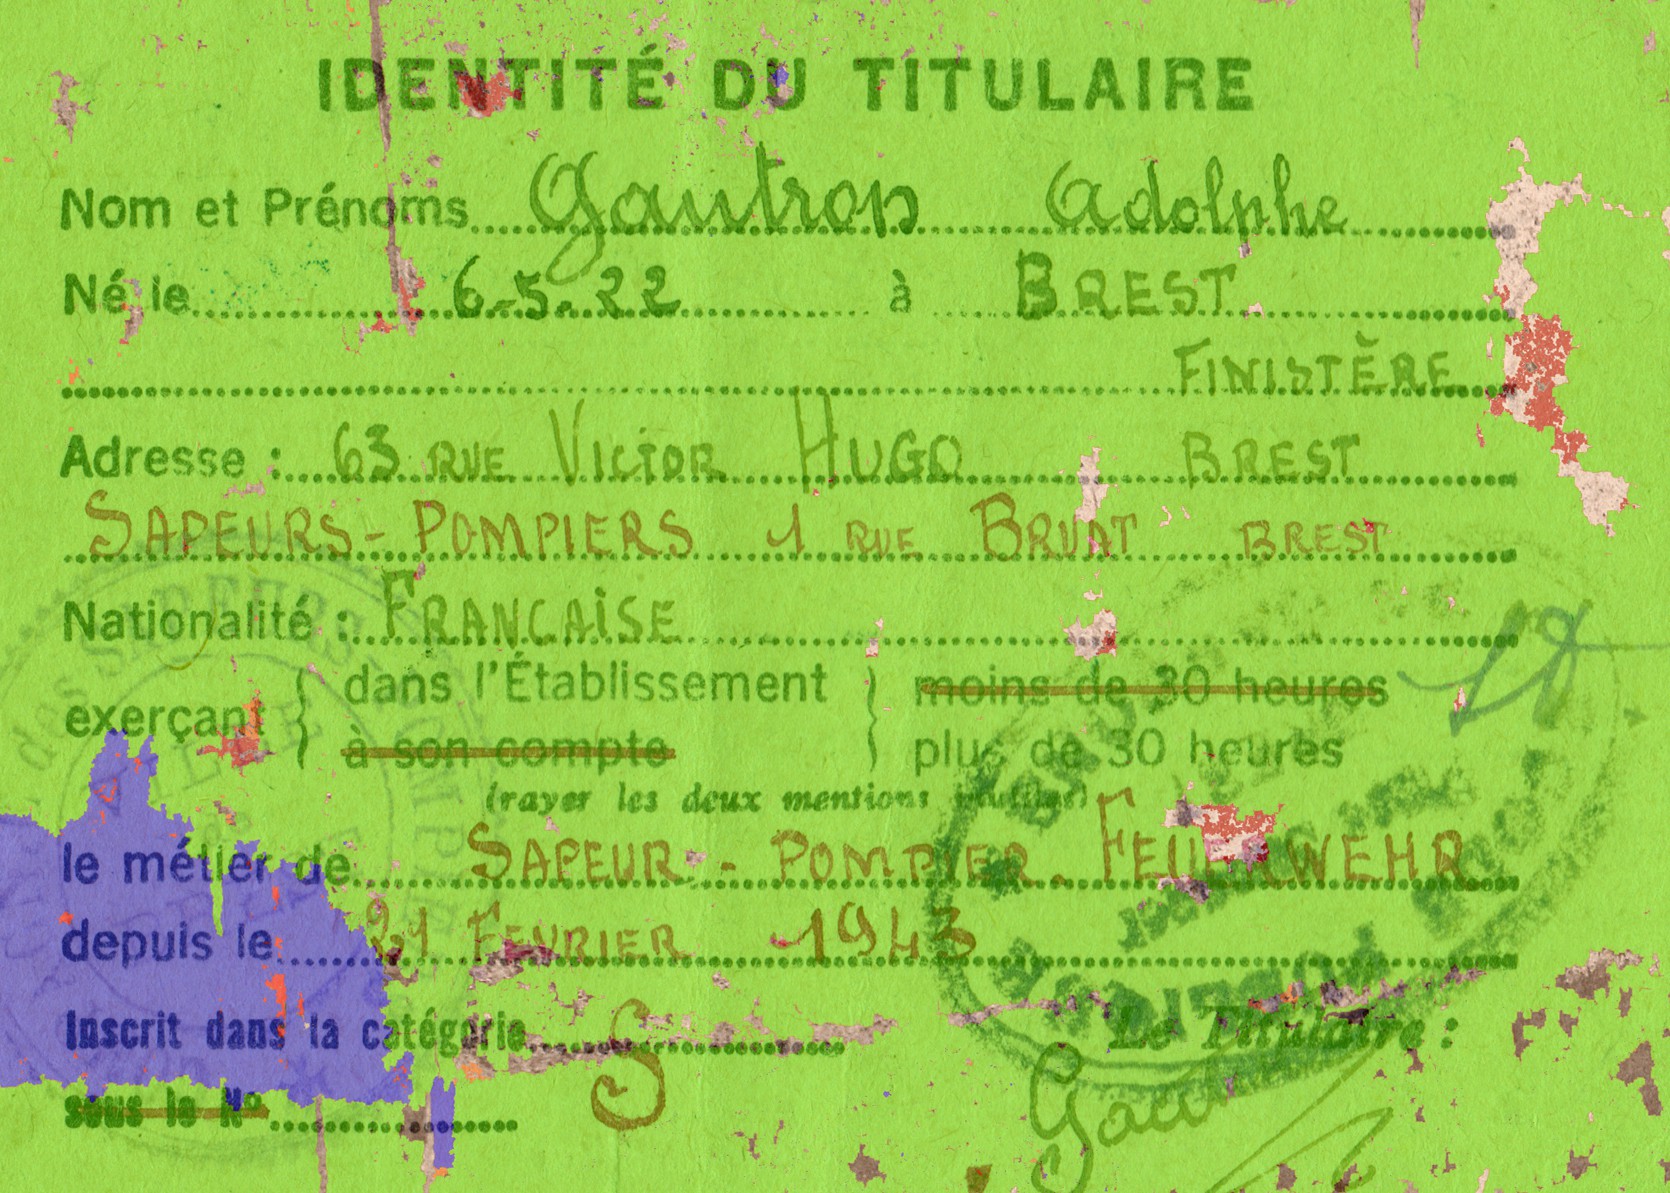 IDENTITÉ DU TITULAIRE
Nom et Prénoms Gautrop Adolphe
Né le 6.5.22 à BREST
FINISTÈRE
Adresse : 63 RUE VICTOR HUGO BREST
SAPEURS-POMPIERS 1 RUE BRUAT BREST
Nationalité : FRANCAISE
exerçant dans l'Établissement moins de 30 heures
à son compte plus de 30 heures
(rayer les deux mentions inutiles)
le métier de SAPEUR-POMPIER. FEUERWEHR
depuis le 21 FEVRIER 1943
Inscrit dans la catégorie S
sous le Nº
Le Titulaire :